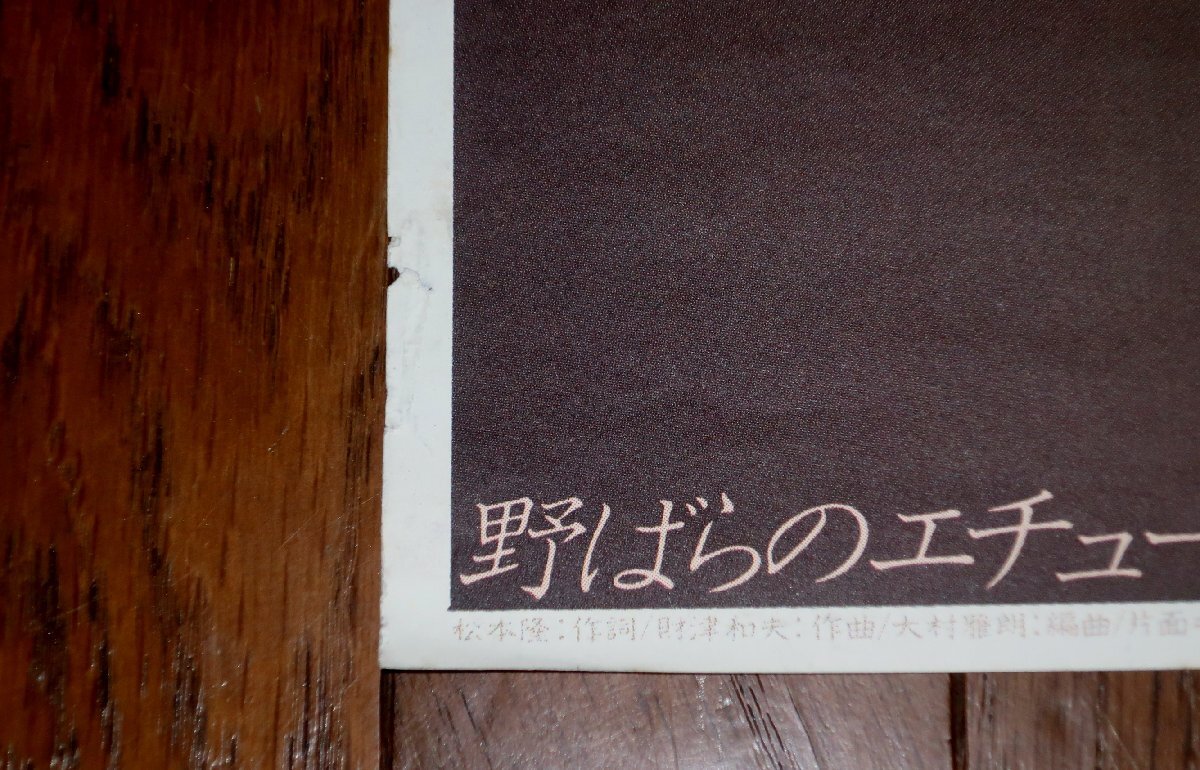 野ばらのエチュー
松本隆:作詞/財津和夫:作曲/大村雅朗:編曲/片面